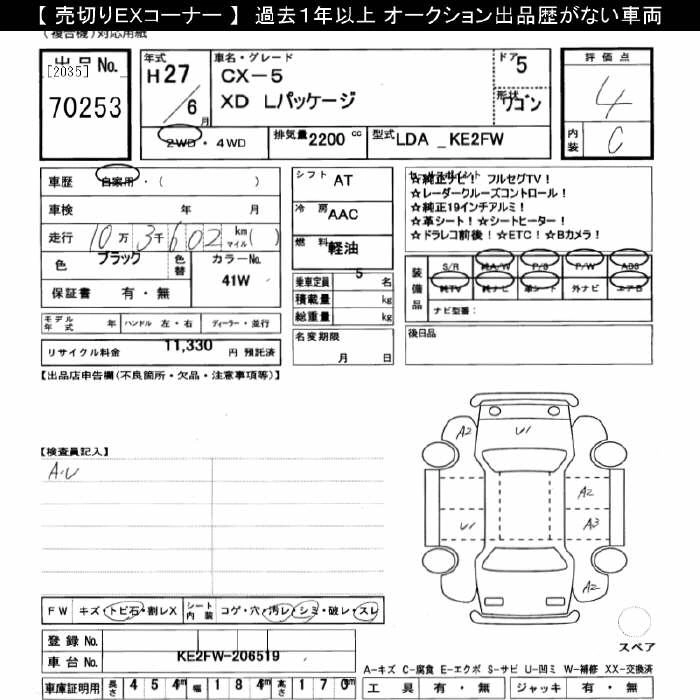 【 売切りEXコーナー 】 過去１年以上 オークション出品歴がない車両
(複合機)対応用紙
出品No.
[2035]
70253
年式
H27
/6月
車名・グレード
CX-5
XD Lパッケージ
ドア
5
形状
ワゴン
2WD・4WD
排気量 2200 cc
型式 LDA_KE2FW
評価点
4
内装 C
車歴 自家用・( )
車検 年 月
走行 10万3千602 km マイル( )
色 ブラック 色替
カラーNo. 41W
保証書 有・無
モデル年式 年 ハンドル 左・右 ディーラー・並行
リサイクル料金 11,330 円 預託済
シフト AT
冷房 AAC
燃料 軽油
乗車定員 5 名
積載量 kg
総重量 kg
名変期限
月 日
セールスポイント
☆純正ナビ！ フルセグTV！
☆レーダークルーズコントロール！
☆純正19インチアルミ！
☆革シート！☆シートヒーター！
☆ドラレコ前後！☆ETC！☆Bカメラ！
装備品
S/R 純A/W P/S P/W ABS
純TV 純ナビ 革シート 外ナビ エアB
ナビ型番：
後日品
【出品店申告欄(不良箇所・欠品・注意事項等)】
【検査員記入】
A.U
A2
U1
A2
U1
A3
A2
スペア
FW キズ・トビ石・割レX
シート内装 コゲ・穴・汚レ・シミ・破レ・スレ
登録No.
車台No. KE2FW-206519
A-キズ C-腐食 E-エクボ S-サビ U-凹ミ W-補修 XX-交換済
車庫証明用 長さ 454cm 幅 184cm 高さ 170cm
工具 有・無 ジャッキ 有・無